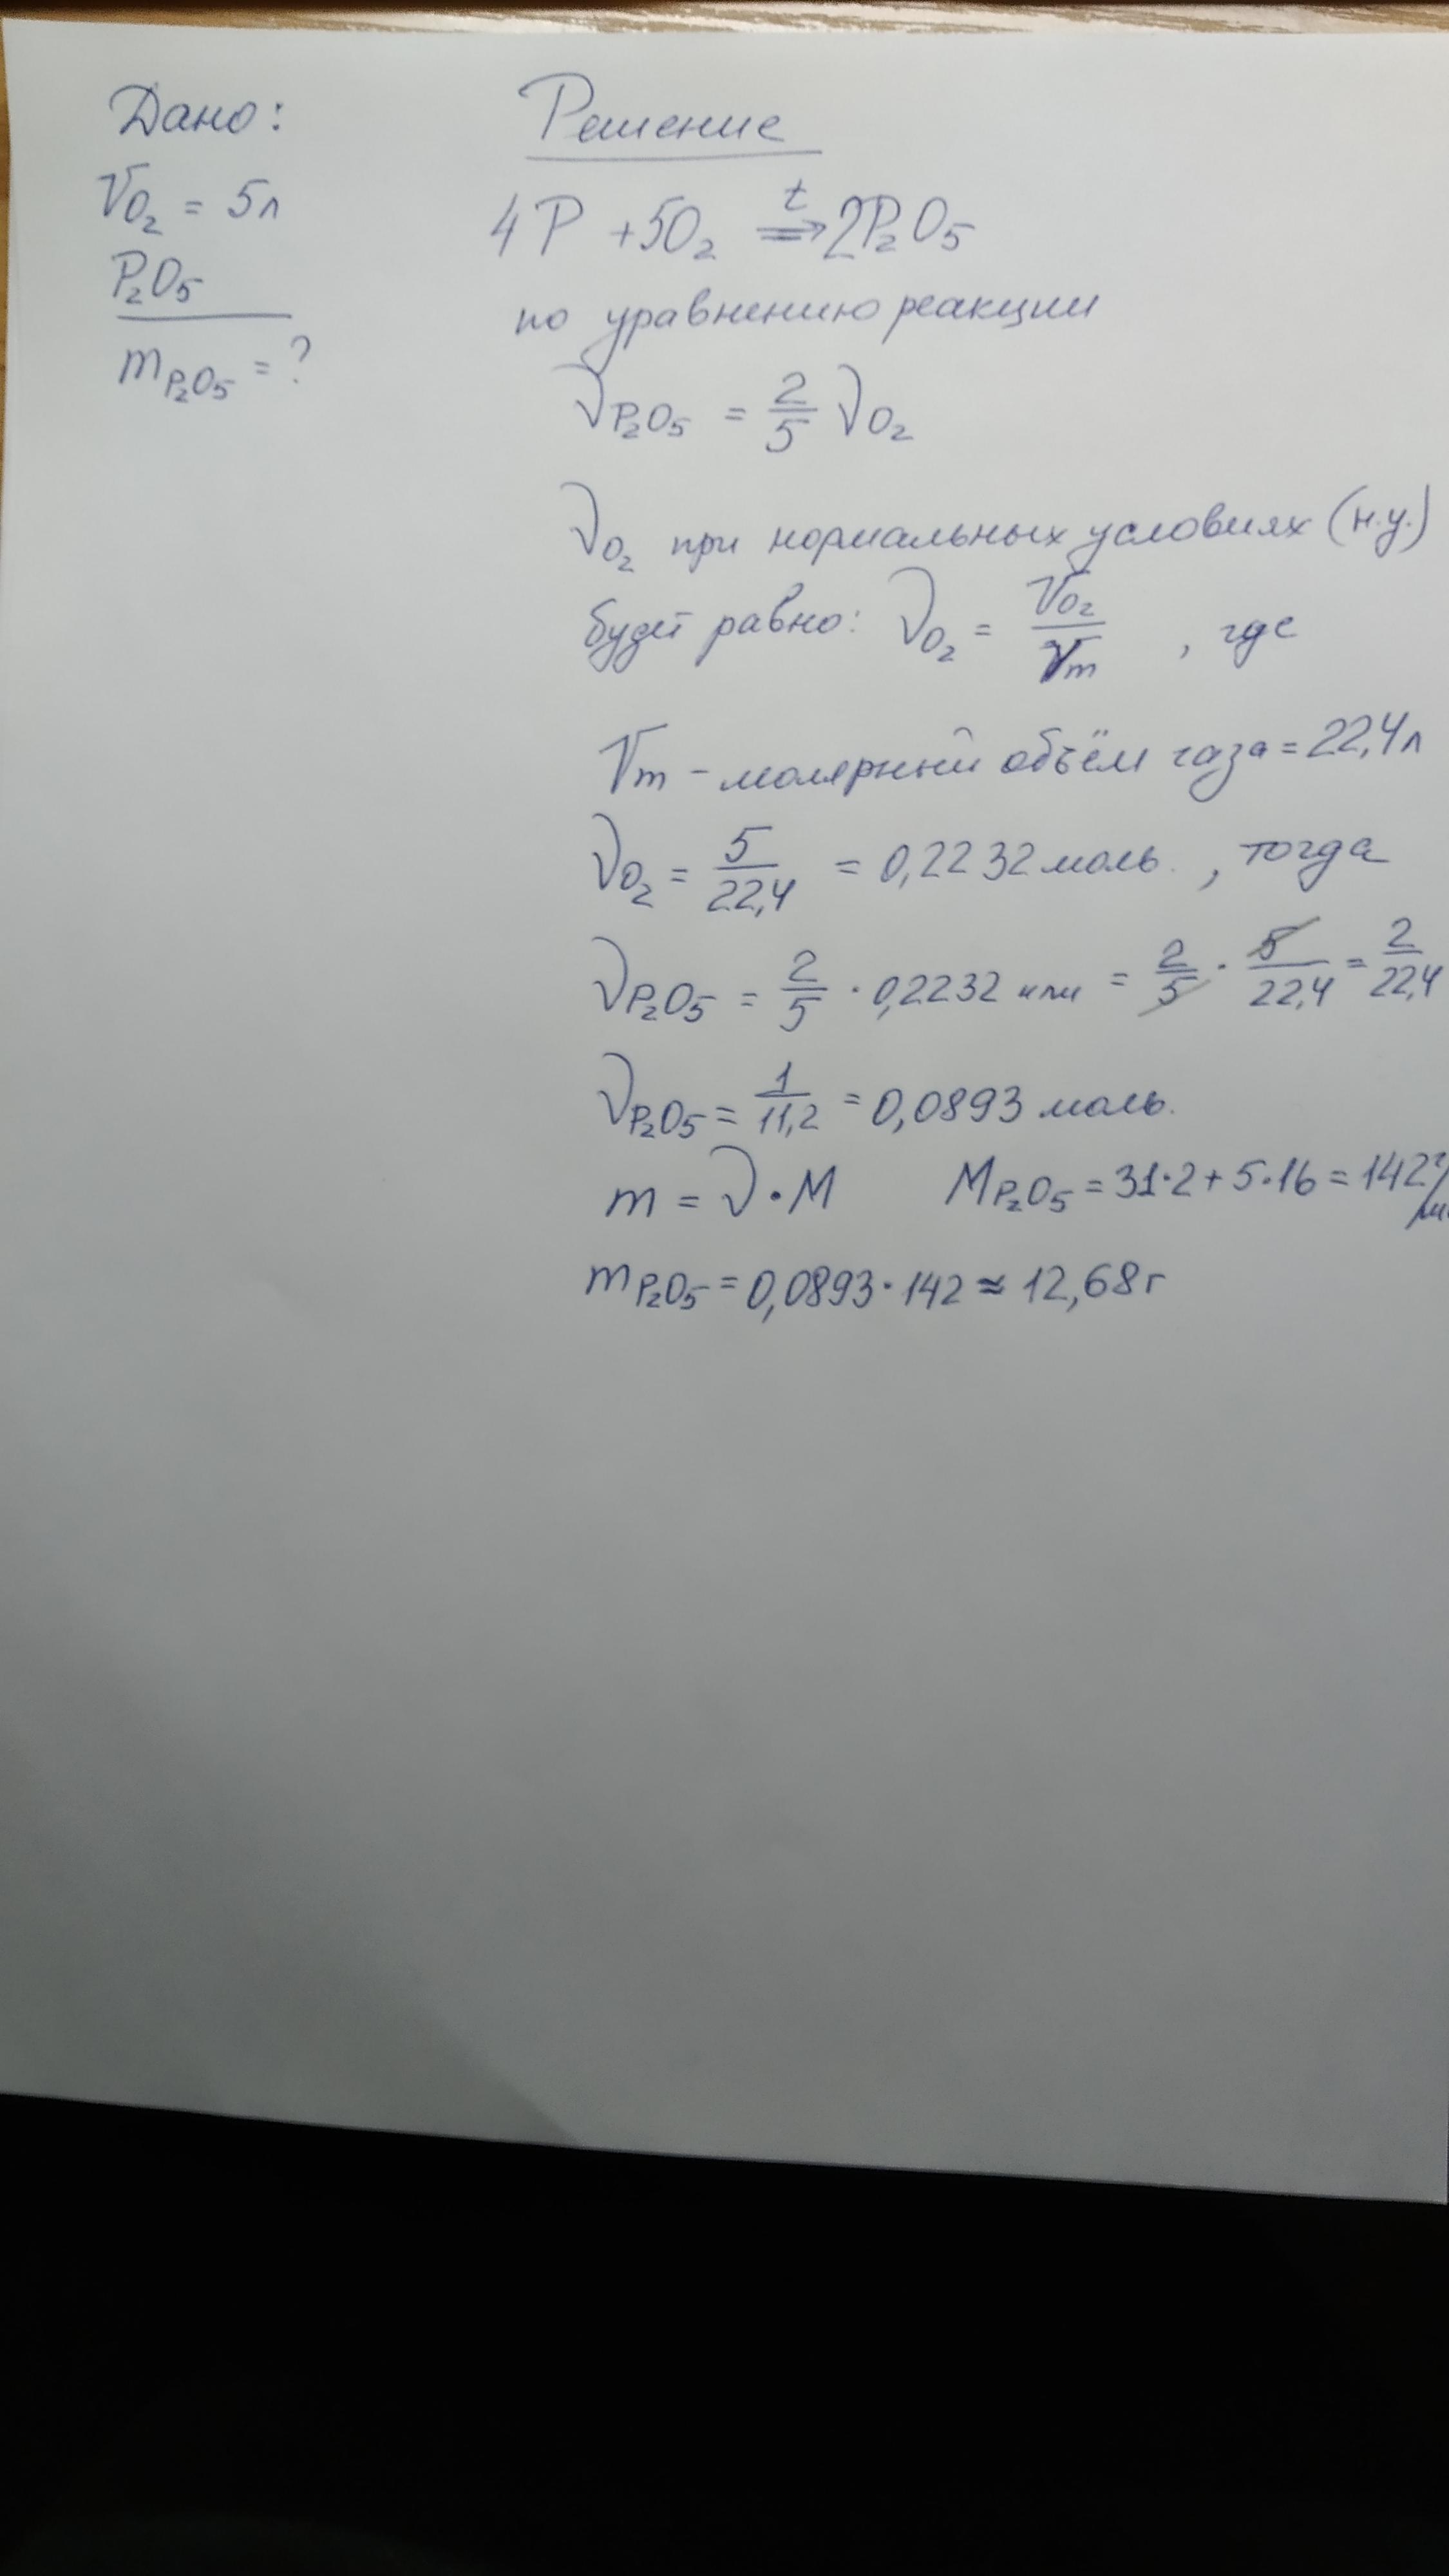 Дано:
V_O₂ = 5л
P₂O₅
m_P₂O₅ = ?
Решение
4P + 5O₂ =t=> 2P₂O₅
по уравнению реакции
ν_P₂O₅ = 2/5 ν_O₂
ν_O₂ при нормальных условиях (н.у.)
будет равно: ν_O₂ = V_O₂/V_m , где
V_m - молярный объём газа = 22,4л
ν_O₂ = 5/22,4 = 0,2232 моль. , тогда
ν_P₂O₅ = 2/5 · 0,2232 или = 2/5 · 5/22,4 = 2/22,4
ν_P₂O₅ = 1/11,2 = 0,0893 моль.
m = ν · M M_P₂O₅ = 31·2 + 5·16 = 142 г/
m_P₂O₅ = 0,0893 · 142 ≈ 12,68 г